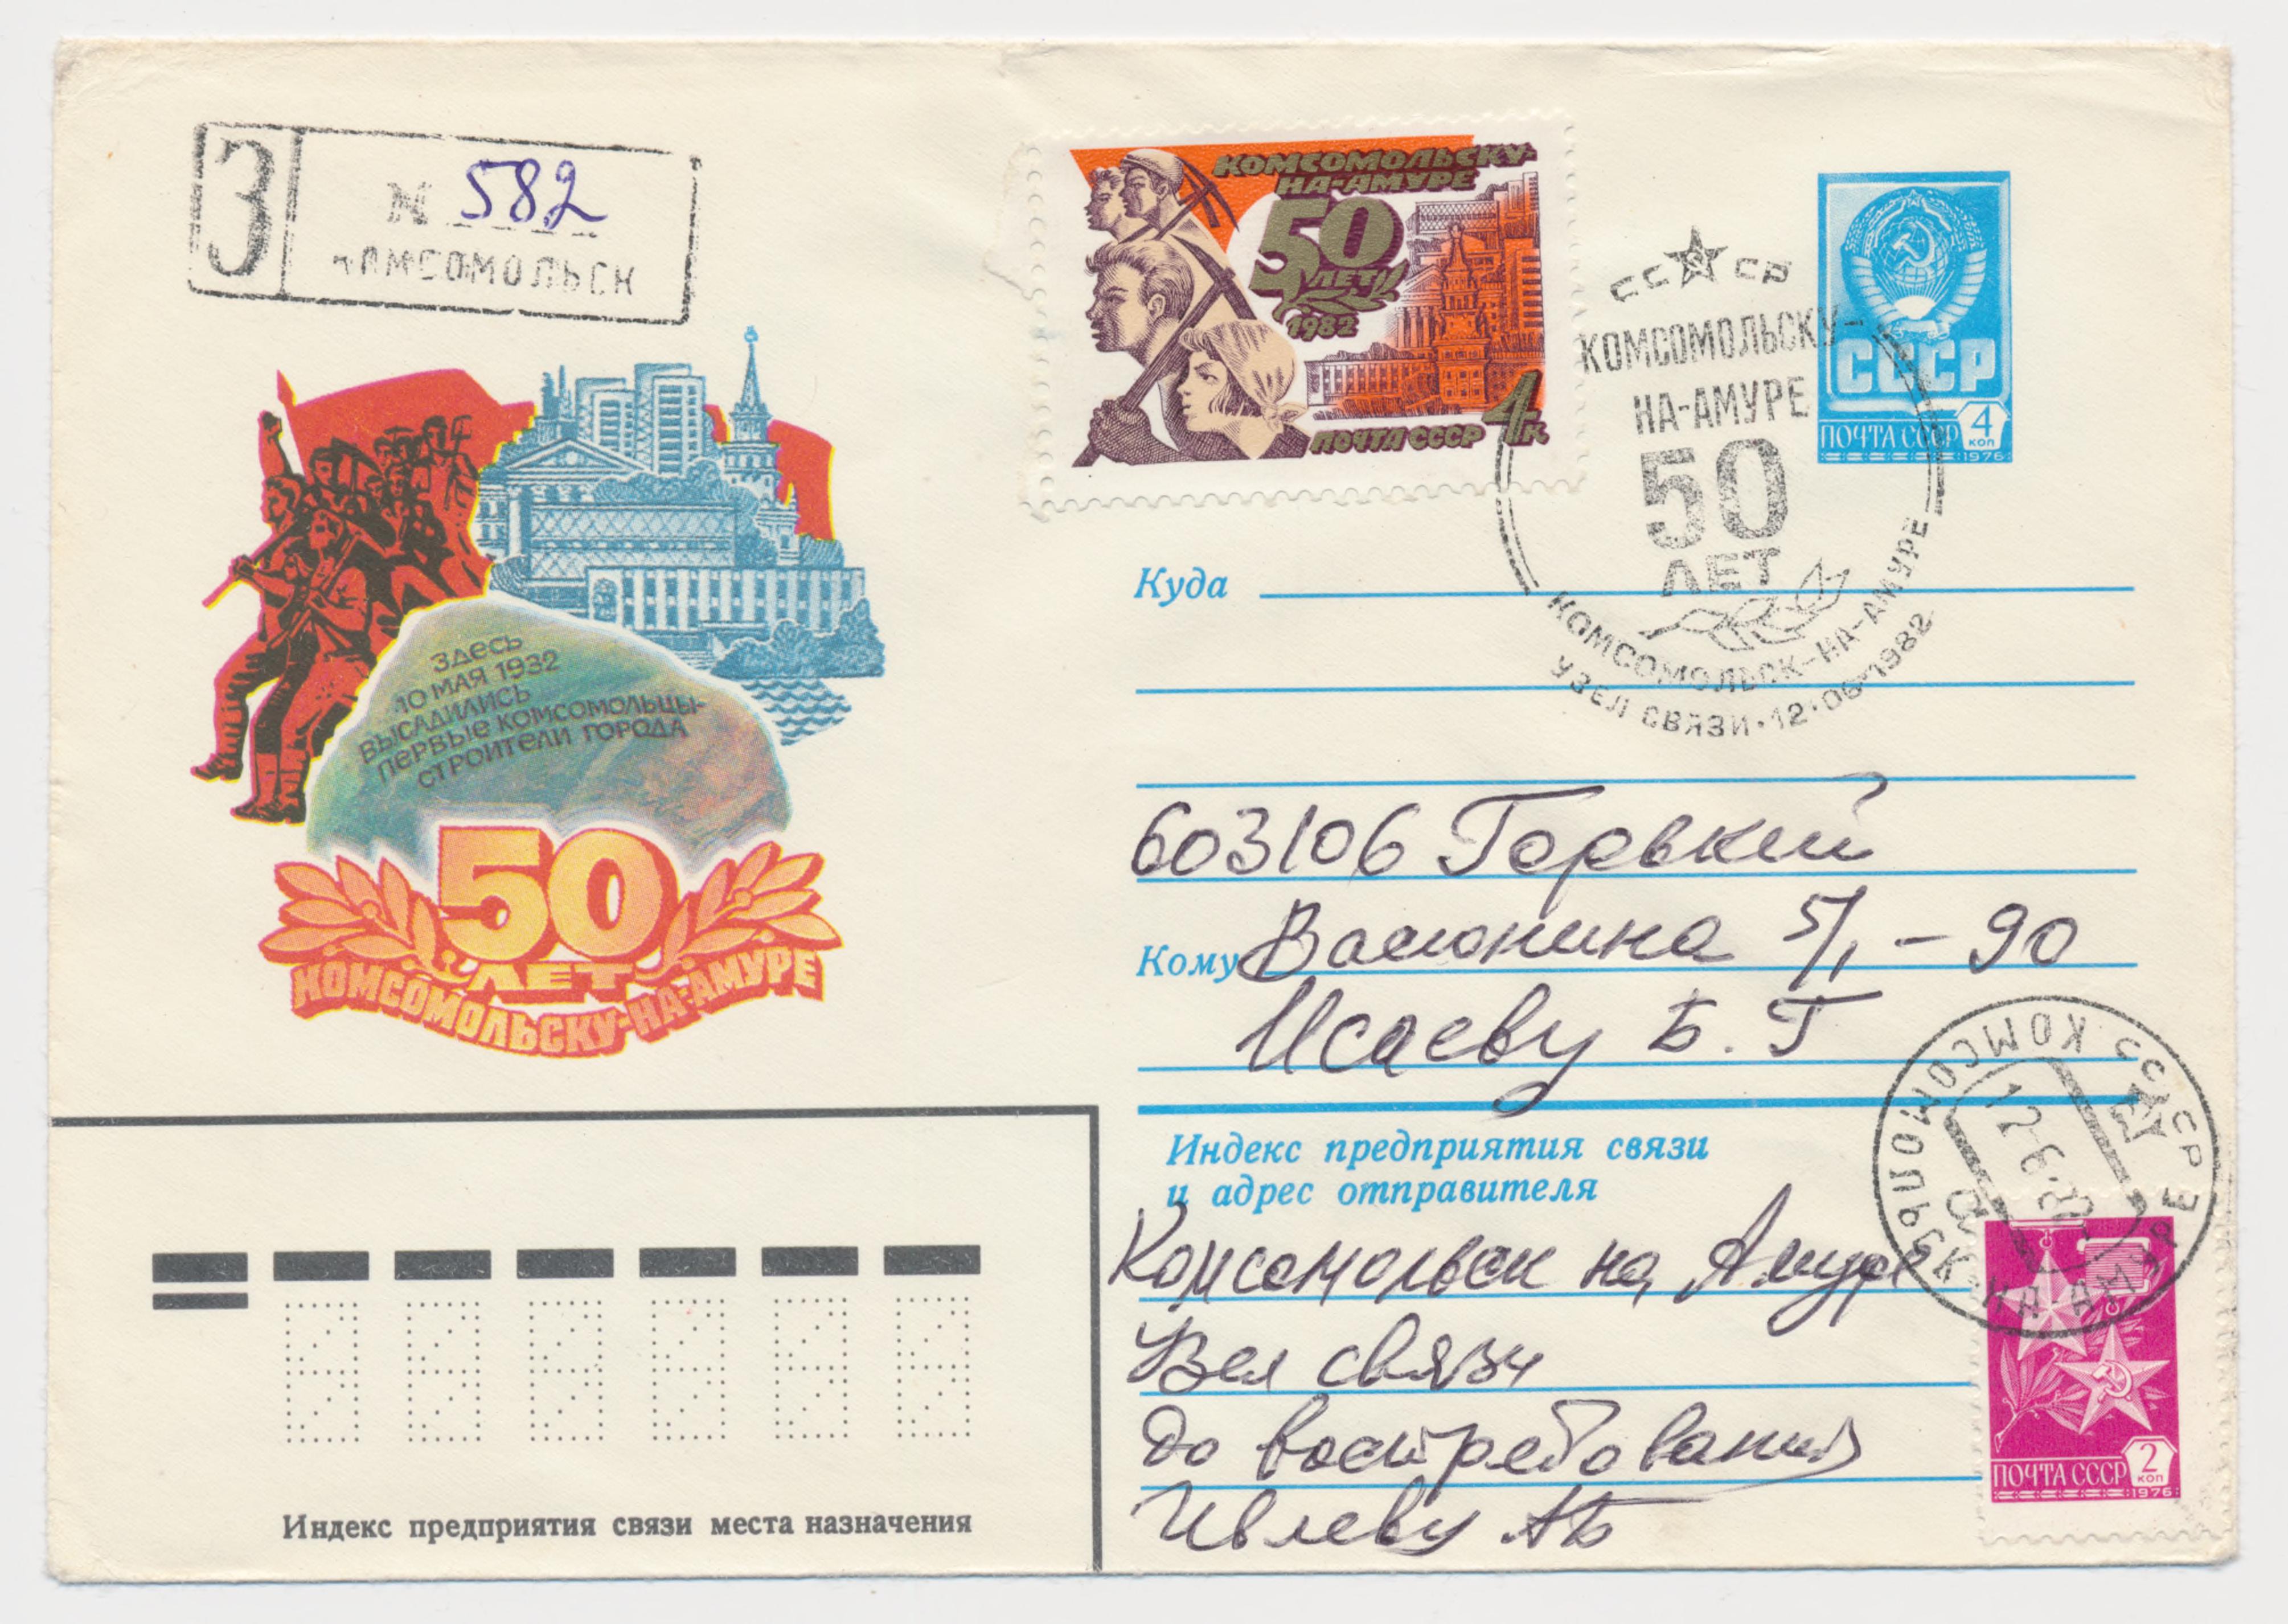 З
№ 582
КОМСОМОЛЬСК
КОМСОМОЛЬСКУ-
НА-АМУРЕ
50
ЛЕТ
1982
ПОЧТА СССР 4к
СССР
КОМСОМОЛЬСКУ-
НА-АМУРЕ
50
ЛЕТ
КОМСОМОЛЬСК-НА-АМУРЕ
УЗЕЛ СВЯЗИ·12·06·1982
СССР
ПОЧТА СССР 4 КОП
1976
ЗДЕСЬ
10 МАЯ 1932
ВЫСАДИЛИСЬ
ПЕРВЫЕ КОМСОМОЛЬЦЫ-
СТРОИТЕЛИ ГОРОДА
50
ЛЕТ
КОМСОМОЛЬСКУ-НА-АМУРЕ
Куда
603106 Горький
Кому Васюнина 5/1 - 90
Исаеву Б. Г
Индекс предприятия связи
и адрес отправителя
Комсомольск на Амуре
Узел связи
до востребования
Ивлеву АБ
СССР КОМСОМОЛЬСК-НА-АМУРЕ
12.6.82
ПОЧТА СССР 2 КОП
1976
Индекс предприятия связи места назначения